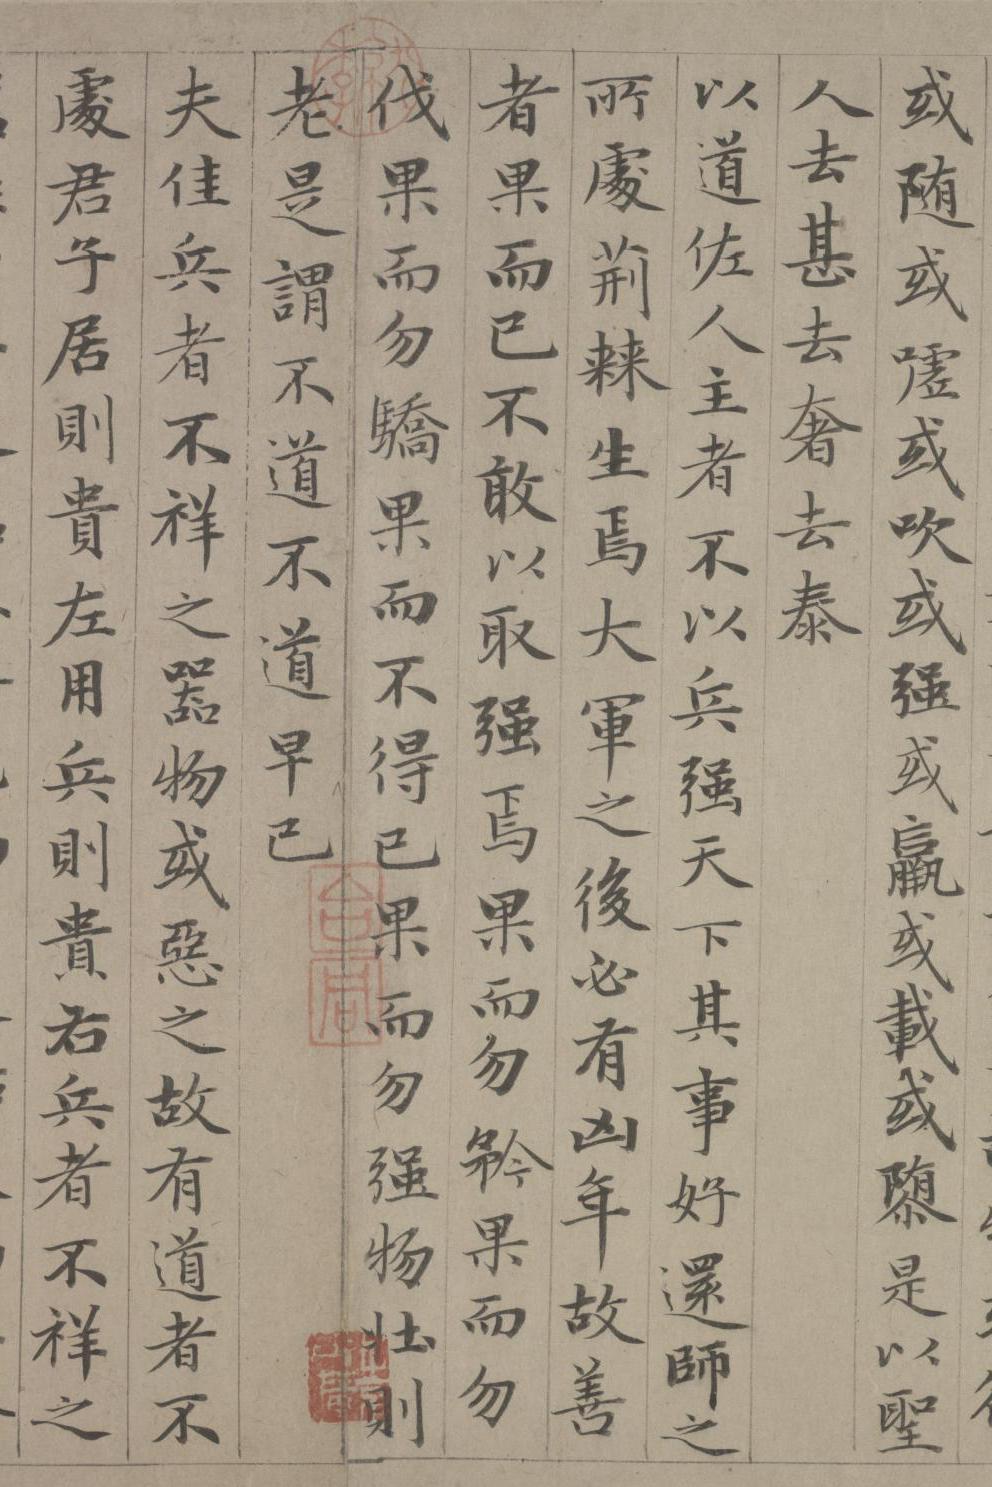 或随或嘘或吹或强或羸或載或隳是以聖
人去甚去奢去泰
以道佐人主者不以兵强天下其事好還師之
所處荆棘生焉大軍之後必有凶年故善
者果而已不敢以取强焉果而勿矜果而勿
伐果而勿驕果而不得已果而勿强物壯則
老是謂不道不道早已
夫佳兵者不祥之器物或惡之故有道者不
處君子居則貴左用兵則貴右兵者不祥之